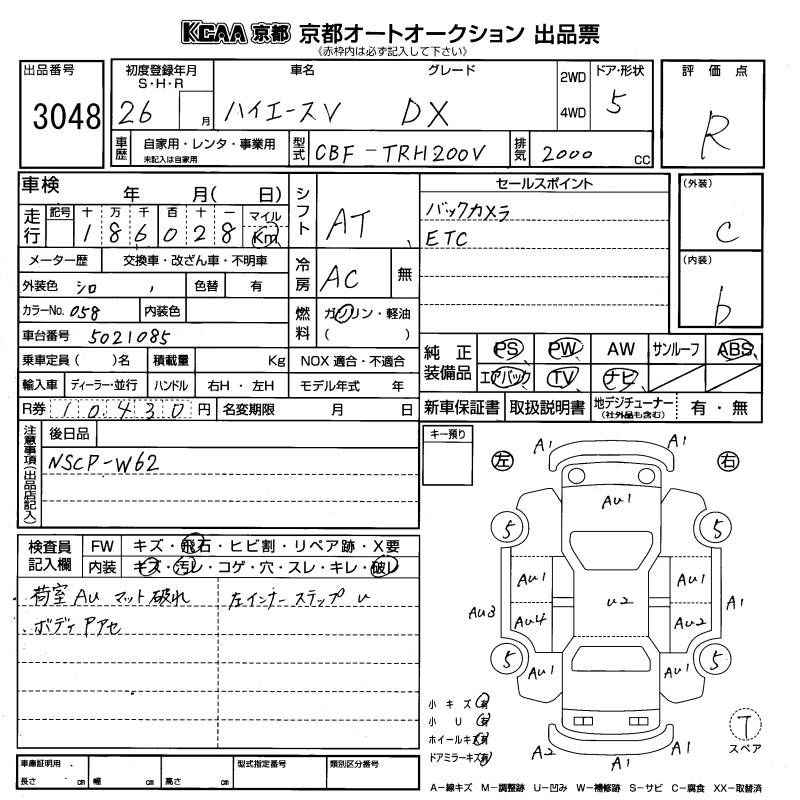 KCAA 京都 京都オートオークション 出品票
《赤枠内は必ず記入して下さい》
出品番号 3048
初度登録年月 S・H・R 26 月
車名 ハイエースV
グレード DX
2WD 4WD
ドア・形状 5
評価点 R
車歴 自家用・レンタ・事業用 未記入は自家用
型式 CBF-TRH200V
排気 2000 CC
車検 年 月( 日)
シフト AT
セールスポイント
バックカメラ
ETC
(外装) C
(内装) b
走行 記号 十 万 千 百 十 一 マイル Km
1 8 6 0 2 8
メーター歴 交換車・改ざん車・不明車
冷房 AC 無
外装色 シロ 色替 有
カラーNo. 058 内装色
燃料 ガソリン・軽油 ( )
車台番号 5021085
乗車定員( )名 積載量 Kg NOX 適合・不適合
輸入車 ディーラー・並行 ハンドル 右H・左H モデル年式 年
純正装備品 PS PW AW サンルーフ ABS
エアバック TV ナビ
R券 10430円 名変期限 月 日
新車保証書 取扱説明書 地デジチューナー (社外品も含む) 有・無
注意事項(出品店記入)
後日品
NSCP-W62
キー預り
左 右
検査員記入欄
FW キズ・飛石・ヒビ割・リペア跡・X要
内装 キズ・汚レ・コゲ・穴・スレ・キレ・破レ
荷室 AU マット破れ 左インナーステップ U
ボディPアセ
A1 A1
A1 A1
AU1
5 5
AU1 AU1
U2
AU3 AU4 AU2 A1
5 5
AU1 AU1
A2 A1 A1
小キズ 有
小U 有
ホイールキズ 有
ドアミラーキズ 有
T スペア
車庫証明用 長さ cm 幅 cm 高さ cm
型式指定番号 類別区分番号
A−線キズ M−調整跡 U−凹み W−補修跡 S−サビ C−腐食 XX−取替済